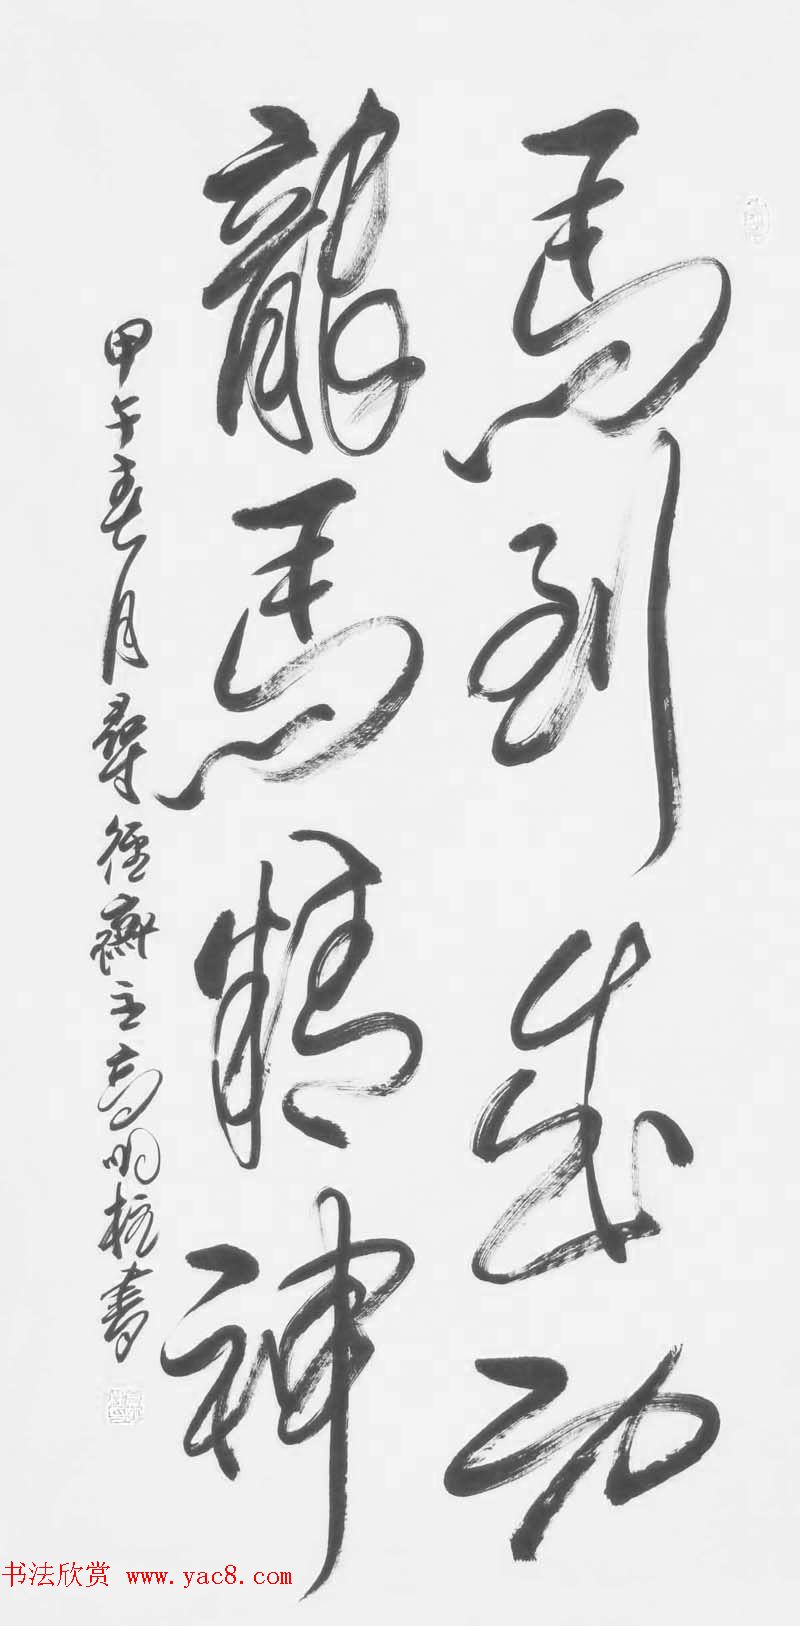 馬到成功
龍馬精神
甲午春月尋徑齋主高明柱書
书法欣赏 www.yac8.com